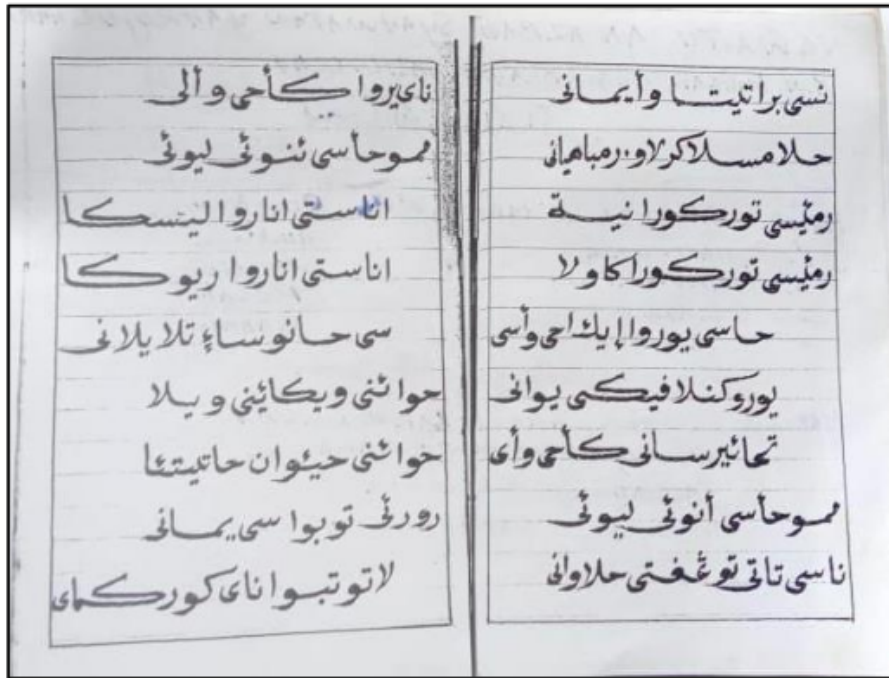 نسى براتيتا وأيمانى
حلا مسلا كرلاو. رمباميانى
رمئيسى توركورا نية
رمئيسى توركورا كاولا
حاسى يوروا إيك احى وأسى
يوروكنلا فيكى يوانى
تحائيرسانى كأحى وأى
ممو حأسى أنوئى ليوئى
ناسى تاتى توغفتى حلاوانى
ناى يروا كأحى وألى
ممو حأسى ئنوئى ليوئى
اناستى اناروا ليتسكا
اناستى اناروا ريوكا
سى حانو ساءٍ تلا يلانى
حوائنى ويكائينى ويلا
حوائنى حيئوان حاتيتئا
رورئى توبوا سى يمانى
لاتوتبوا ناى كوركماى